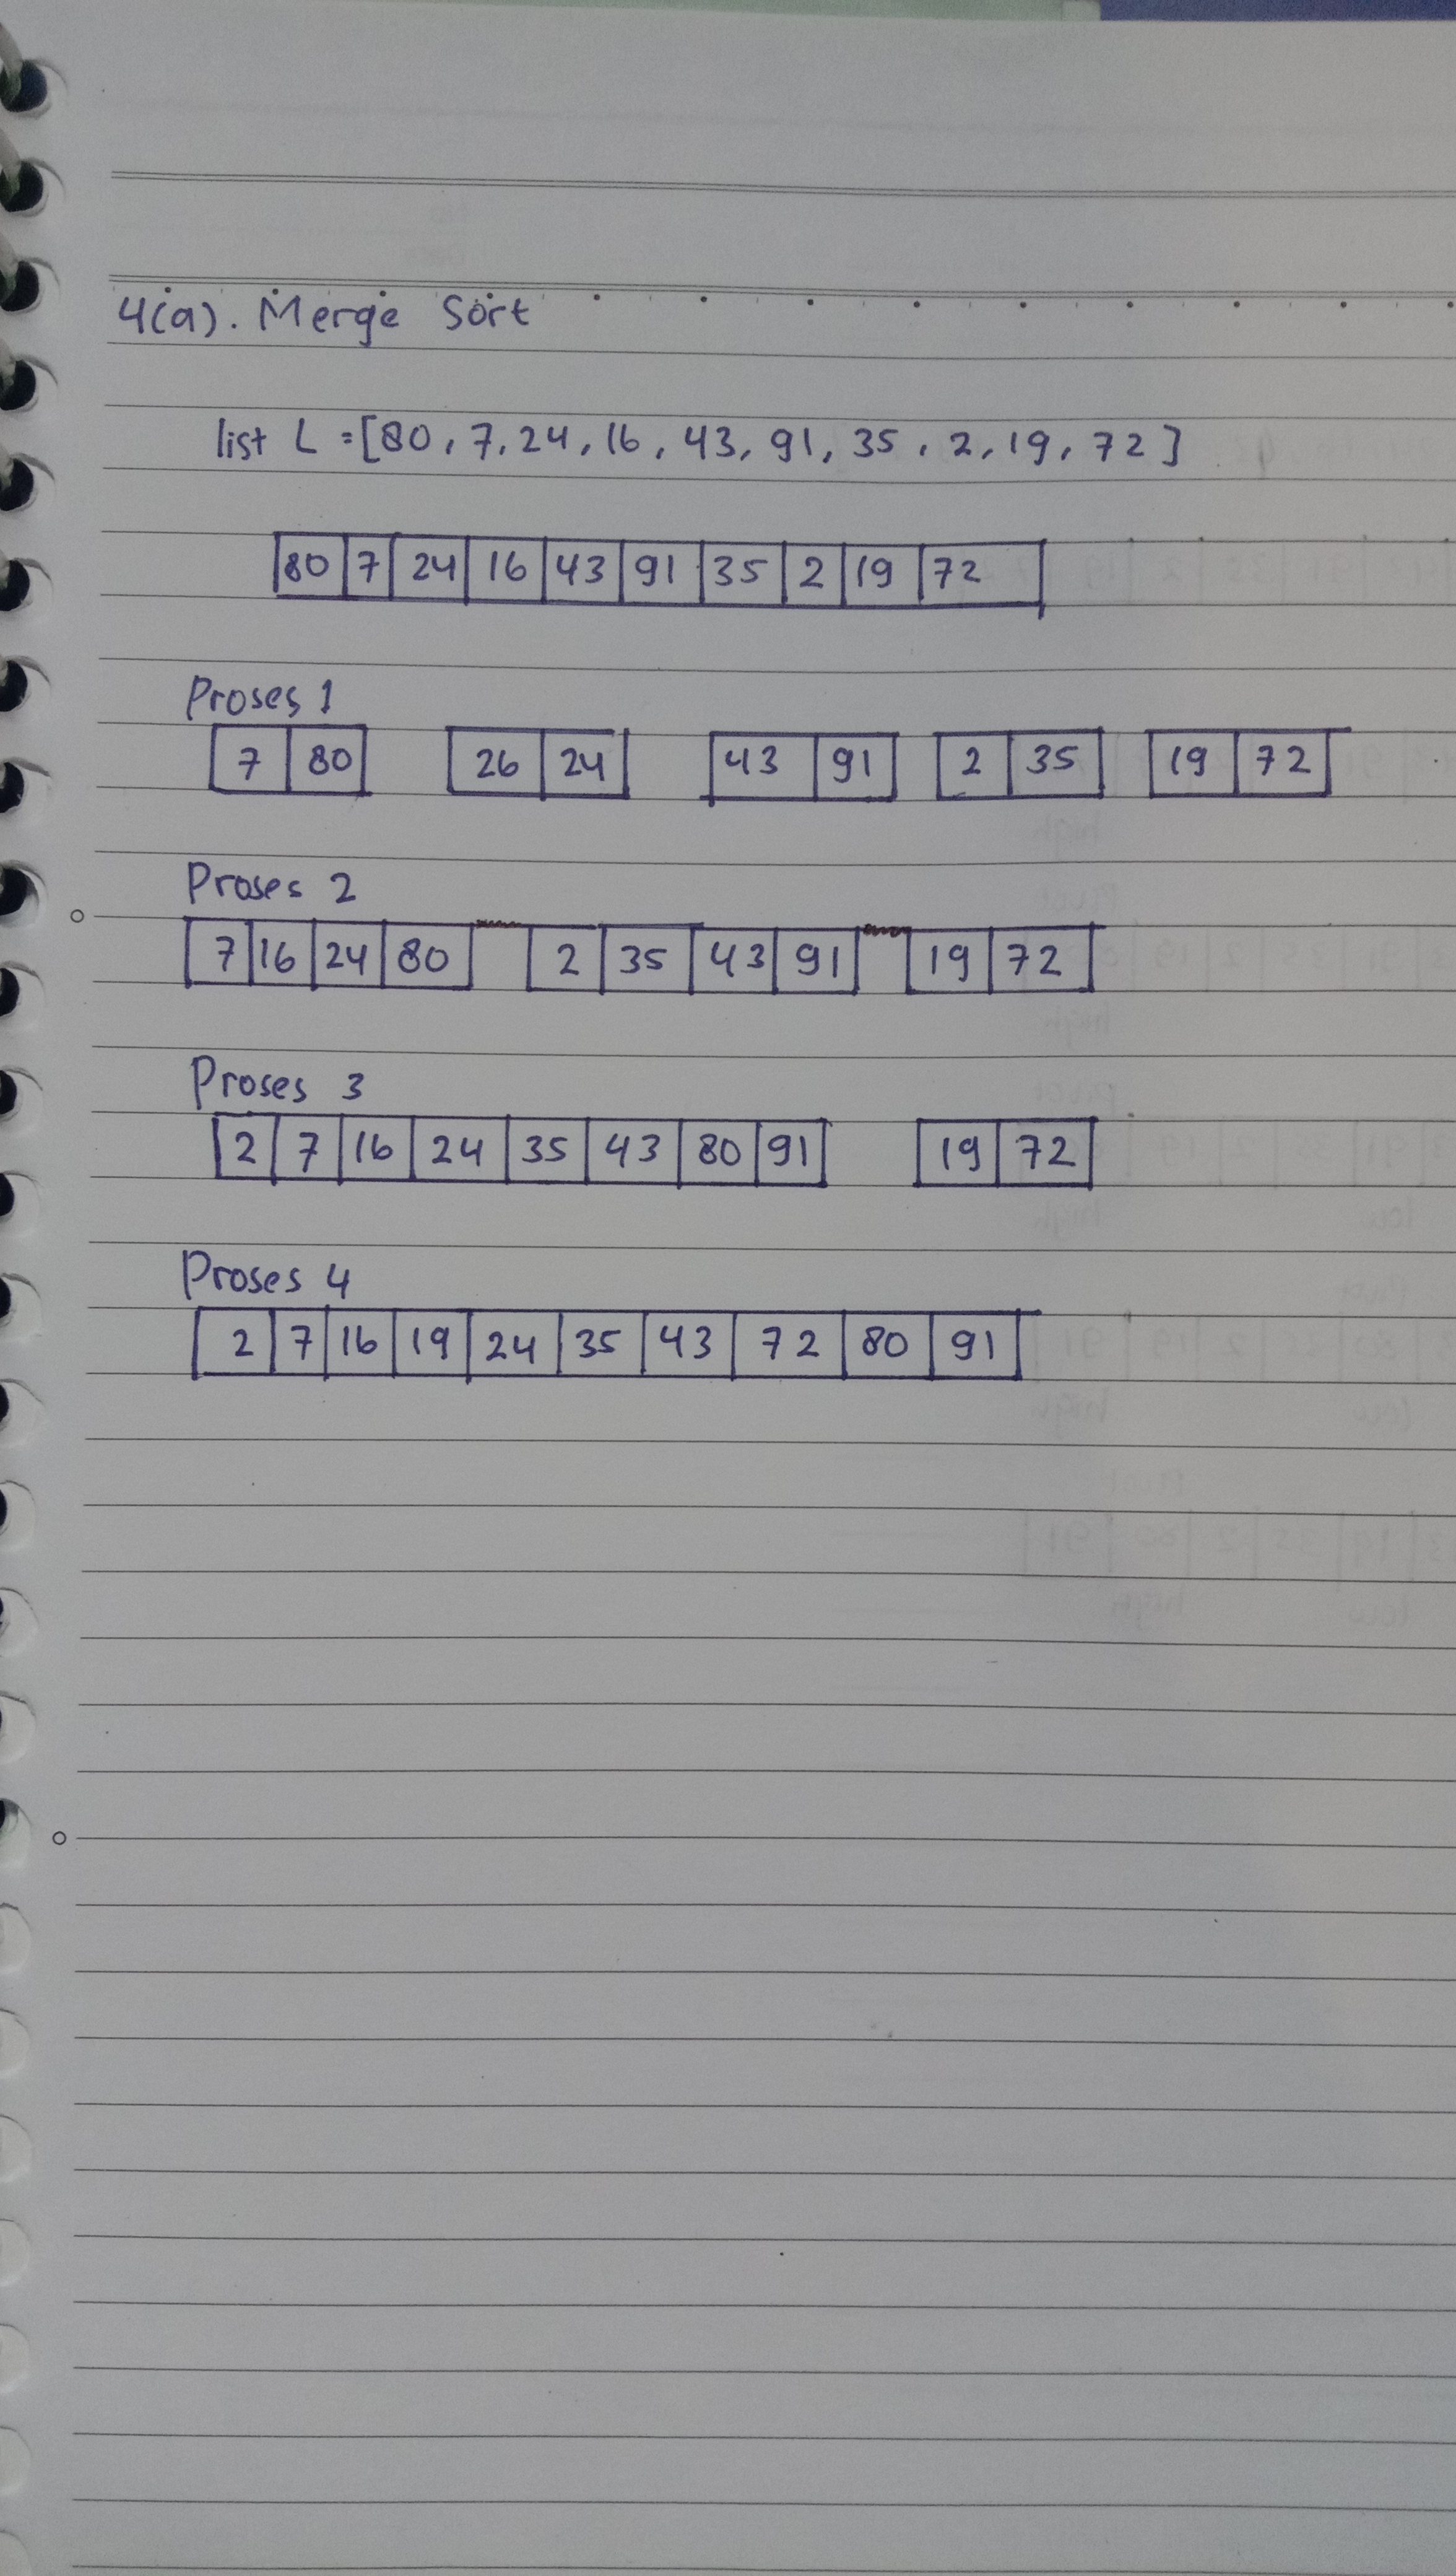 4(a). Merge Sort
list L = [80, 7, 24, 16, 43, 91, 35, 2, 19, 72]
80 7 24 16 43 91 35 2 19 72
Proses 1
7 80 26 24 43 91 2 35 19 72
Proses 2
7 16 24 80 2 35 43 91 19 72
Proses 3
2 7 16 24 35 43 80 91 19 72
Proses 4
2 7 16 19 24 35 43 72 80 91